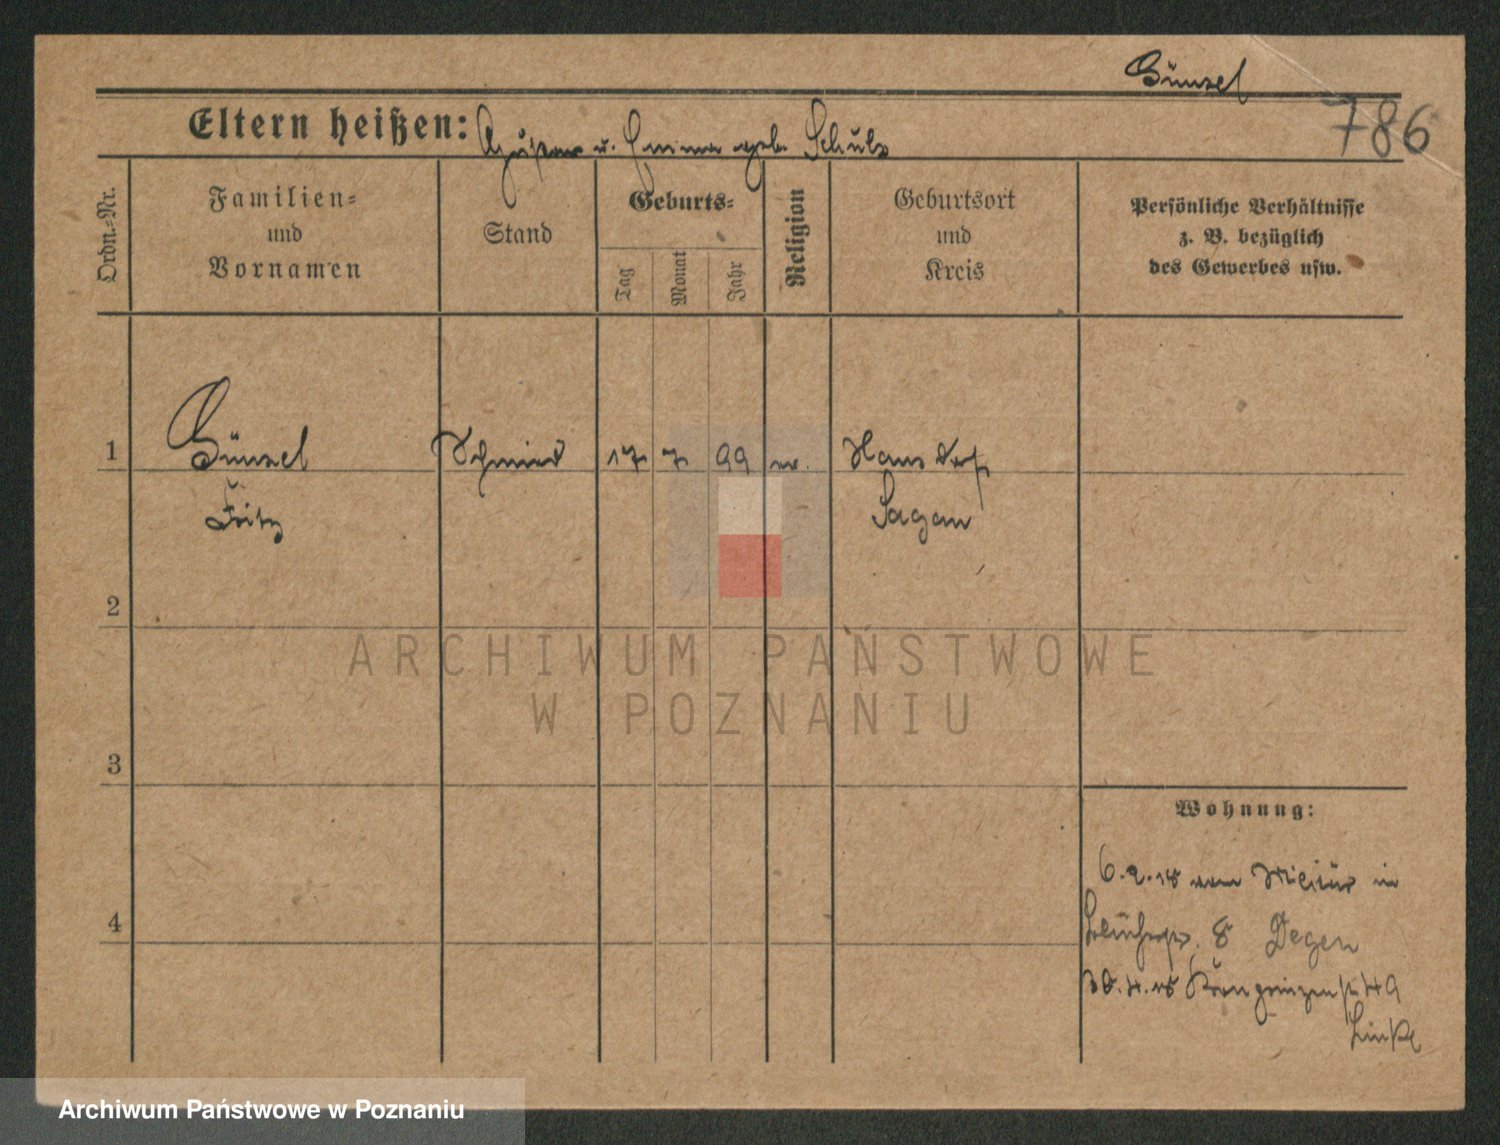 Günzel
786
Eltern heißen: Gustav u. Emma geb. Schulz
Ordn.-Nr.
Familien-
und
Vornamen
Stand
Geburts-
Tag
Monat
Jahr
Religion
Geburtsort
und
Kreis
Persönliche Verhältnisse
z. B. bezüglich
des Gewerbes usw.
1
Günzel Schmied 17 7 99 ev. Hansdorf
Fritz Sagan
2
3
4
Wohnung:
6.2.18 vom Militär in
8 Degen
30.4.18 Kronprinzenstr 49
Linke
ARCHIWUM PAŃSTWOWE
W POZNANIU
Archiwum Państwowe w Poznaniu